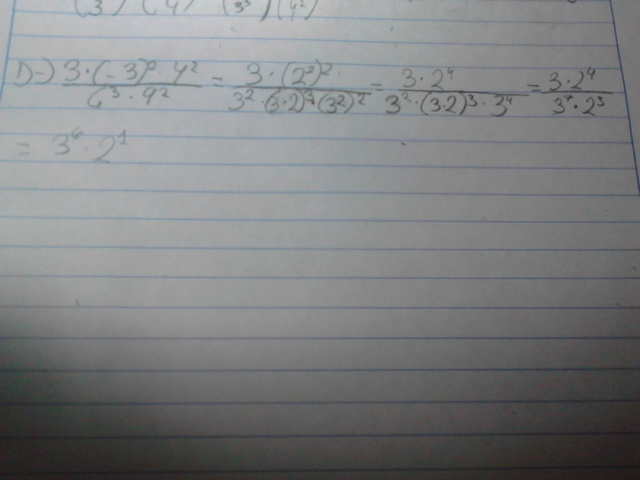 (3) (4) (3³) (4²)
D-) 3·(-3)²·4² / 6³·9² = 3·(2²)² / 3²·(3·2)³(3²)² = 3·2⁴ / 3²·(3·2)³·3⁴ = 3·2⁴ / 3⁷·2³
= 3⁶·2¹